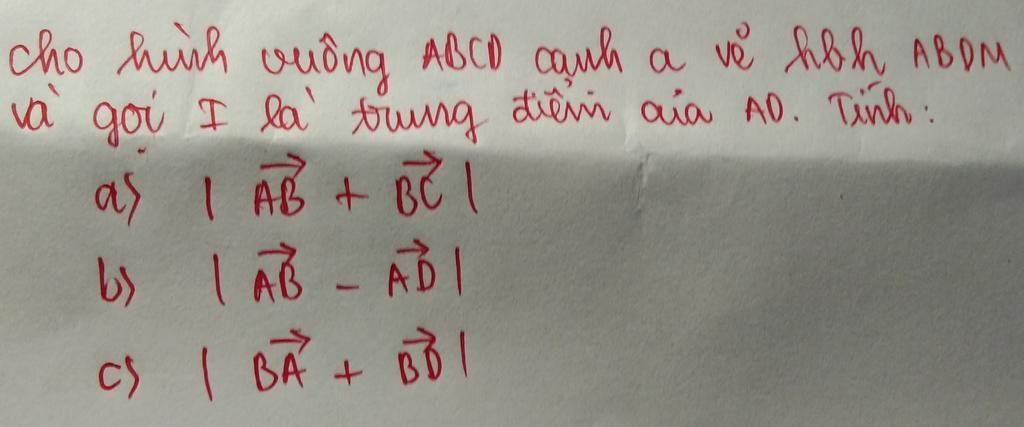 cho hình vuông ABCD cạnh a vẽ hbh ABDM
và gọi I là trung điểm của AD. Tính:
a) | \overrightarrow{AB} + \overrightarrow{BC} |
b) | \overrightarrow{AB} - \overrightarrow{AD} |
c) | \overrightarrow{BA} + \overrightarrow{BD} |